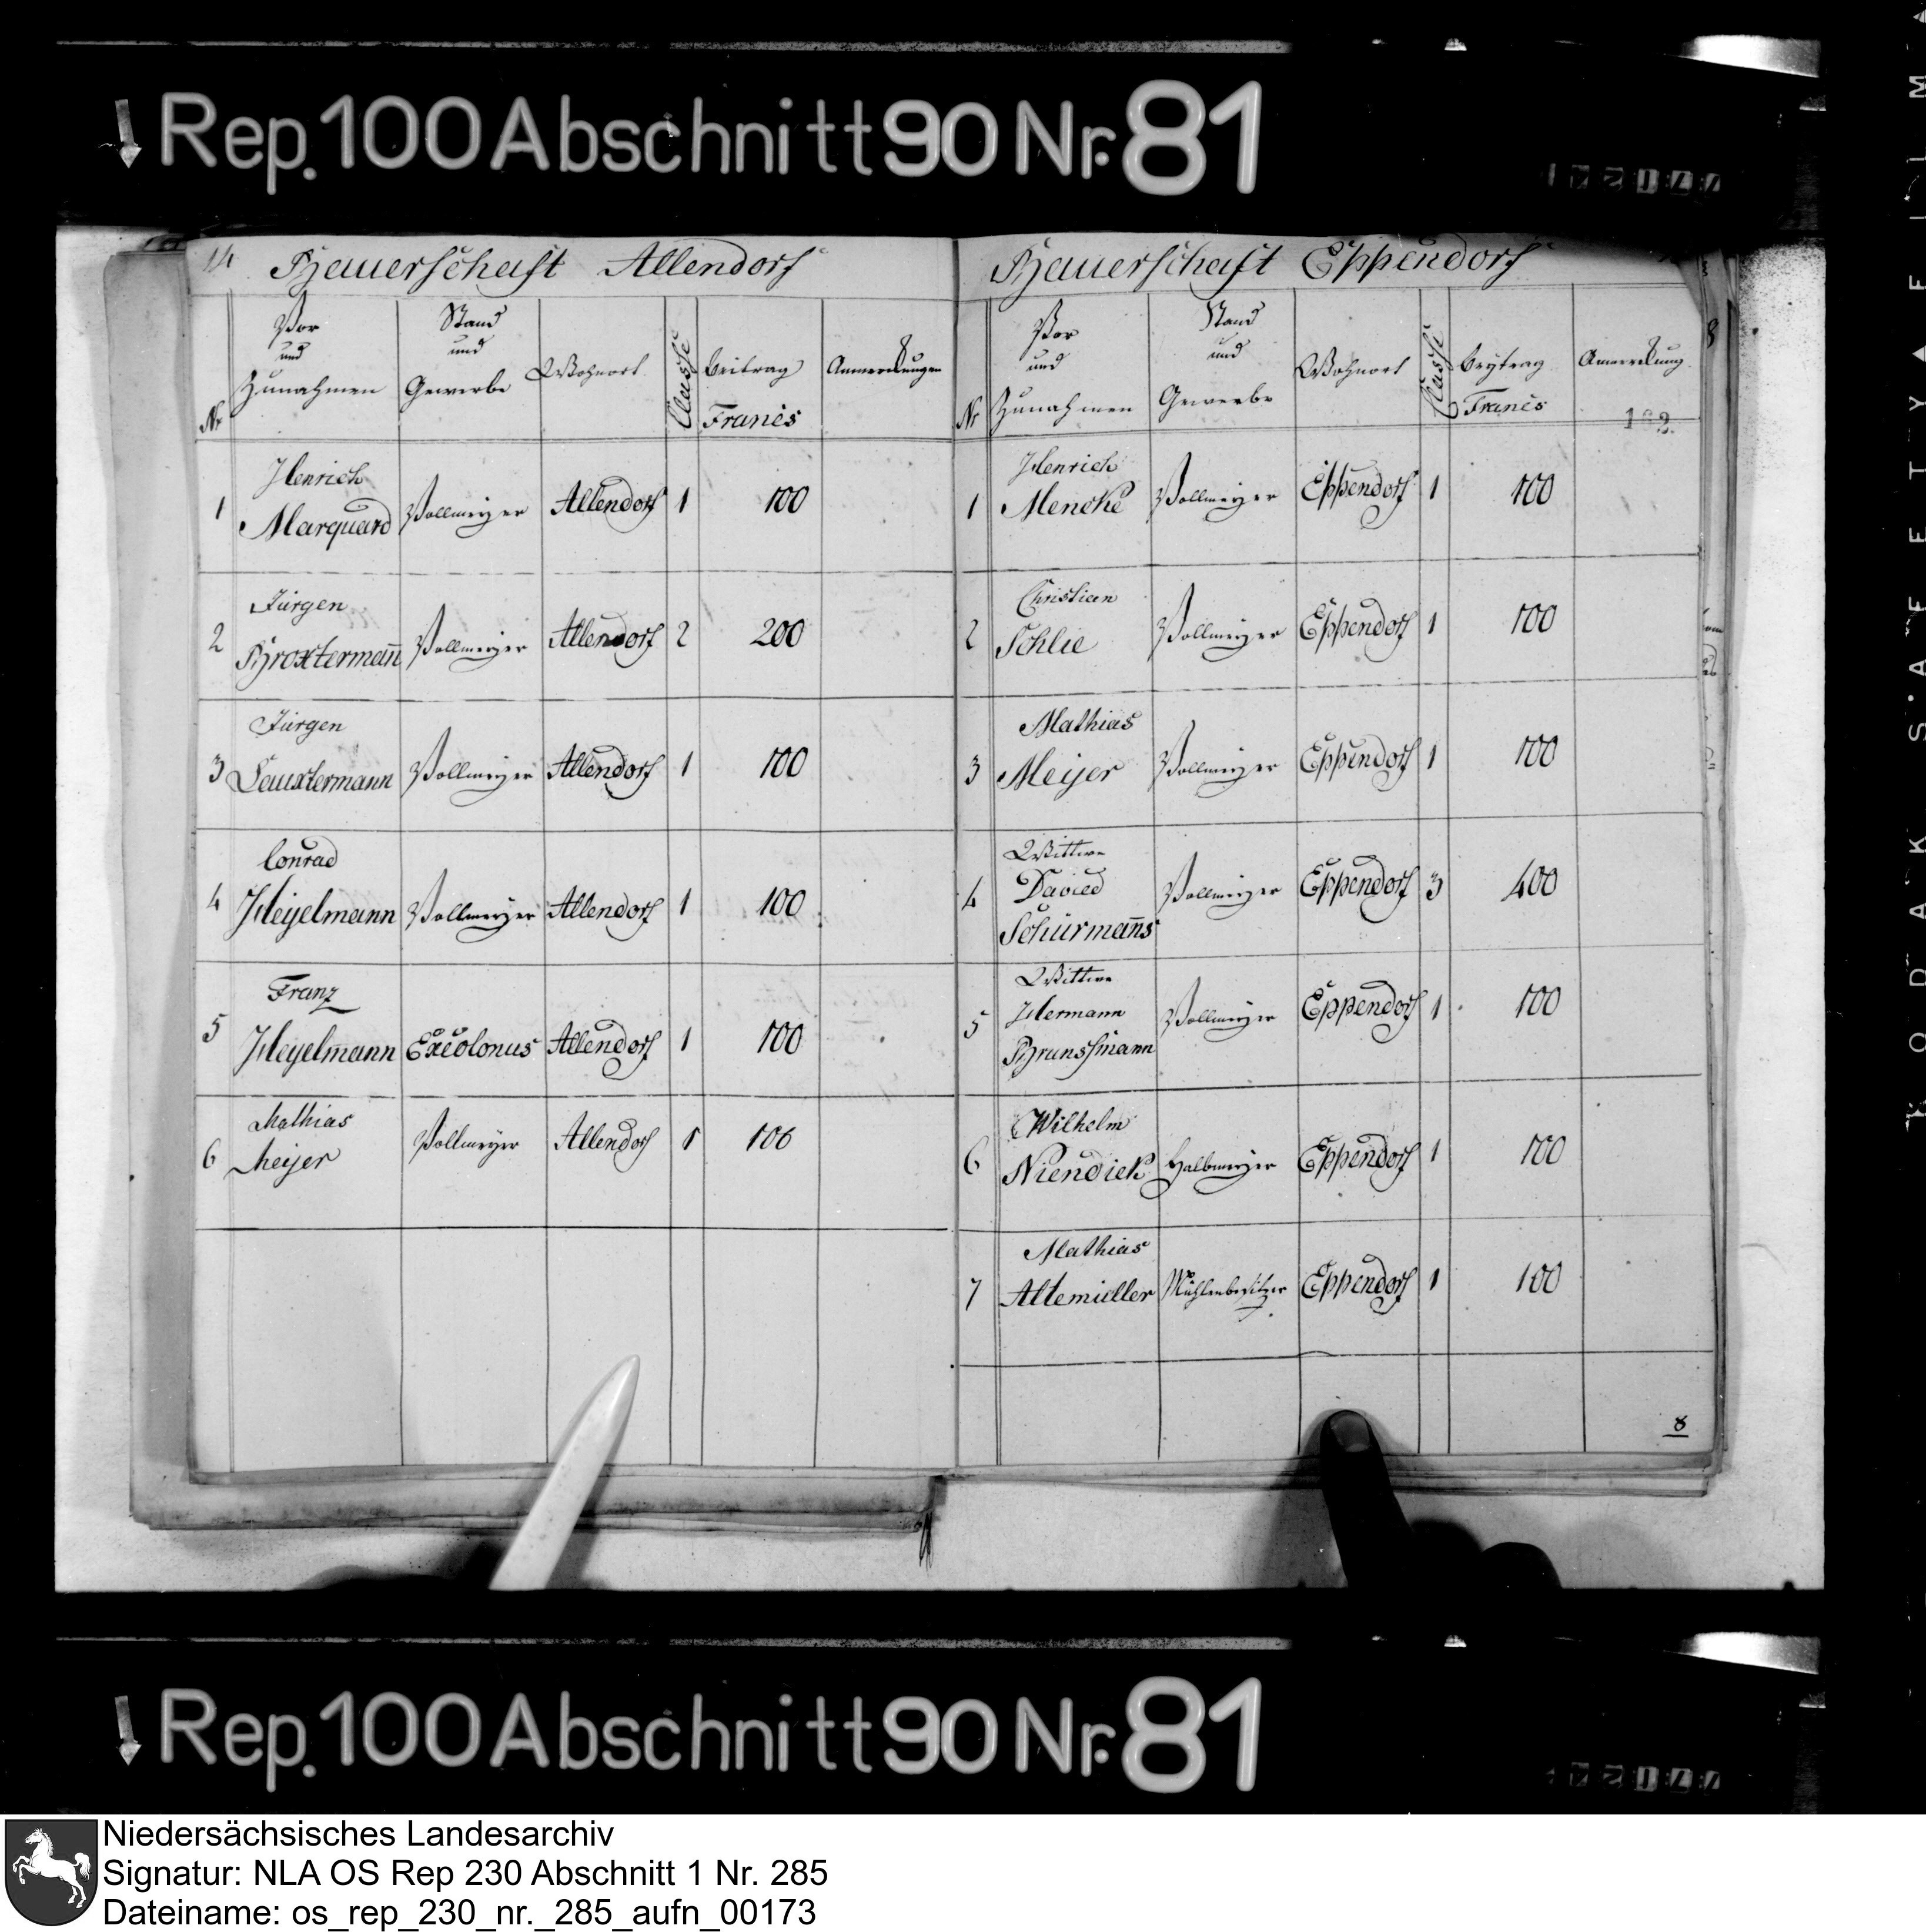 Rep. 100 Abschnitt 90 Nr. 81
14 Bauerschaft Allendorf
Nr Vor und Zunahmen Stand und Gewerbe Wohnort Classe beitrag Francs Anmerckungen
1 Henrich Marquard Vollmeyer Allendorf 1 100
2 Jürgen Broxtermann̄ Vollmeyer Allendorf 2 200
3 Jürgen Vollmeyer Allendorf 1 100
4 Conrad Heyelmann Vollmeyer Allendorf 1 100
5 Franz Heyelmann Excolonus Allendorf 1 100
6 Mathias Meyer Vollmeyer Allendorf 1 100
Bauerschaft Eppendorf
Nr Vor und Zunahmen Stand und Gewerbe Wohnort Classe beytrag Francs Anmerckung
1 Henrich Mencke Vollmeyer Eppendorf 1 100
2 Christian Schlie Vollmeyer Eppendorf 1 100
3 Mathias Meyer Vollmeyer Eppendorf 1 100
4 Wittwe Davied Schürman̄s Vollmeyer Eppendorf 3 400
5 Wittwe Hermann Brunsmann Vollmeyer Eppendorf 1 100
6 Wilhelm Niendiek Halbmeyer Eppendorf 1 100
7 Mathias Altemüller Mühlenbesitzer Eppendorf 1 100
8
Rep. 100 Abschnitt 90 Nr. 81
Niedersächsisches Landesarchiv
Signatur: NLA OS Rep 230 Abschnitt 1 Nr. 285
Dateiname: os_rep_230_nr._285_aufn_00173